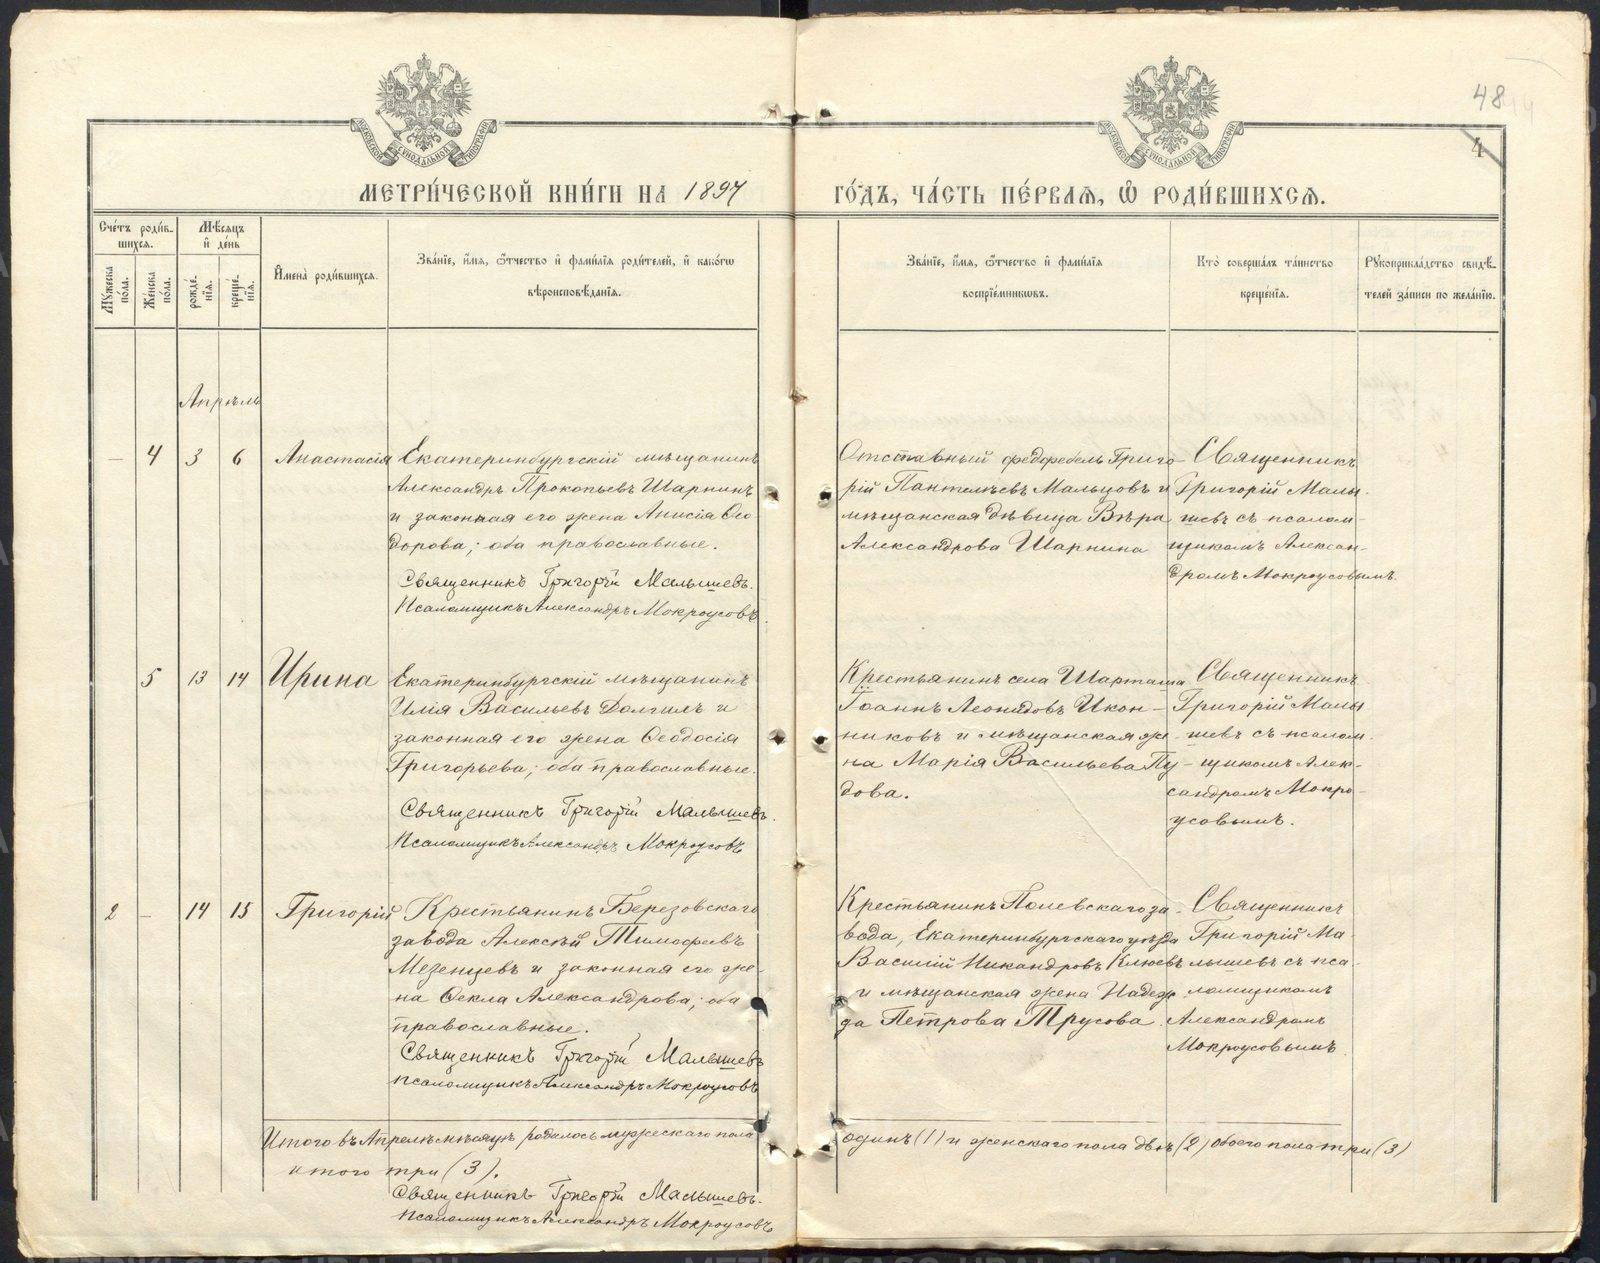 48
4
МЕТРИ́ЧЕСКОЙ КНИ́ГИ НА 1897
ГО́ДЪ, ЧА́СТЬ ПЕ́РВАѦ, Ѡ҆ РОДИ́ВШИХСѦ.
Сче́тъ роди́в-
шихсѧ.
Мѣ́сѧцъ
и҆ де́нь
Мꙋ́жеска
по́ла.
Же́нска
по́ла.
рожде́-
нїѧ.
креще́-
нїѧ.
И҆мена̀ роди́вшихсѧ.
Зва́нїе, и҆́мѧ, ѻ҆́тчество и҆ фами́лїѧ роди́телей, и҆ како́гѡ
вѣроисповѣ́данїѧ.
Зва́нїе, и҆́мѧ, ѻ҆́тчество и҆ фами́лїѧ
воспрїе́мникѡвъ.
Кто̀ соверша́лъ та́инство
креще́нїѧ.
Рꙋкоприкла́дство свидѣ́-
телей за́писи по жела́нїю.
Апрѣль
— 4 3 6 Анастасія
Екатеринбургскій мѣщанинъ
Александръ Прокопьевъ Шарнинъ
и законная его жена Анисія Ѳео
дорова; оба православные.
Священникъ Григорій Малышевъ.
Псаломщикъ Александръ Мокроусовъ.
Отставный федфебель Григо-
рій Пантелѣевъ Мальцовъ и
мѣщанская дѣвица Вѣра
Александрова Шарнина
Священникъ
Григорій Малы-
шевъ съ псалом-
щикомъ Алексан-
дромъ Мокроусовымъ.
5 13 14 Ирина
Екатеринбургскій мѣщанинъ
Илія Васильевъ Долгихъ и
законная его жена Ѳеодосія
Григорьева; оба православные.
Священникъ Григорій Малышевъ.
Псаломщикъ Александръ Мокроусовъ
Крестьянинъ села Шарташа
Іоаннъ Леонидовъ Икон-
никовъ и мѣщанская же-
на Марія Васильева Пу-
дова.
Священникъ
Григорій Малы
шевъ съ псалом-
щикомъ Алек-
сандромъ Мокро-
усовымъ.
2 — 14 15 Григорій
Крестьянинъ Березовскаго
завода Алексѣй Тимофеевъ
Мезенцевъ и законная его же-
на Ѳекла Александрова; оба
православные.
Священникъ Григорій Малышевъ
Псаломщикъ Александръ Мокроусовъ
Крестьянинъ Полевскаго за-
вода, Екатеринбургскаго уѣзда
Василій Никандровъ Клюевъ
и мѣщанская жена Надеж
да Петрова Трусова.
Священникъ
Григорій Ма-
лышевъ съ пса-
ломщикомъ
Александромъ
Мокроусовымъ
Итого въ Апрелѣ мѣсяцѣ родилось мужескаго пола
одинъ (1) и женскаго пола двѣ (2) обоего пола три (3)
итого три (3).
Священникъ Григорій Малышевъ.
Псаломщикъ Александръ Мокроусовъ